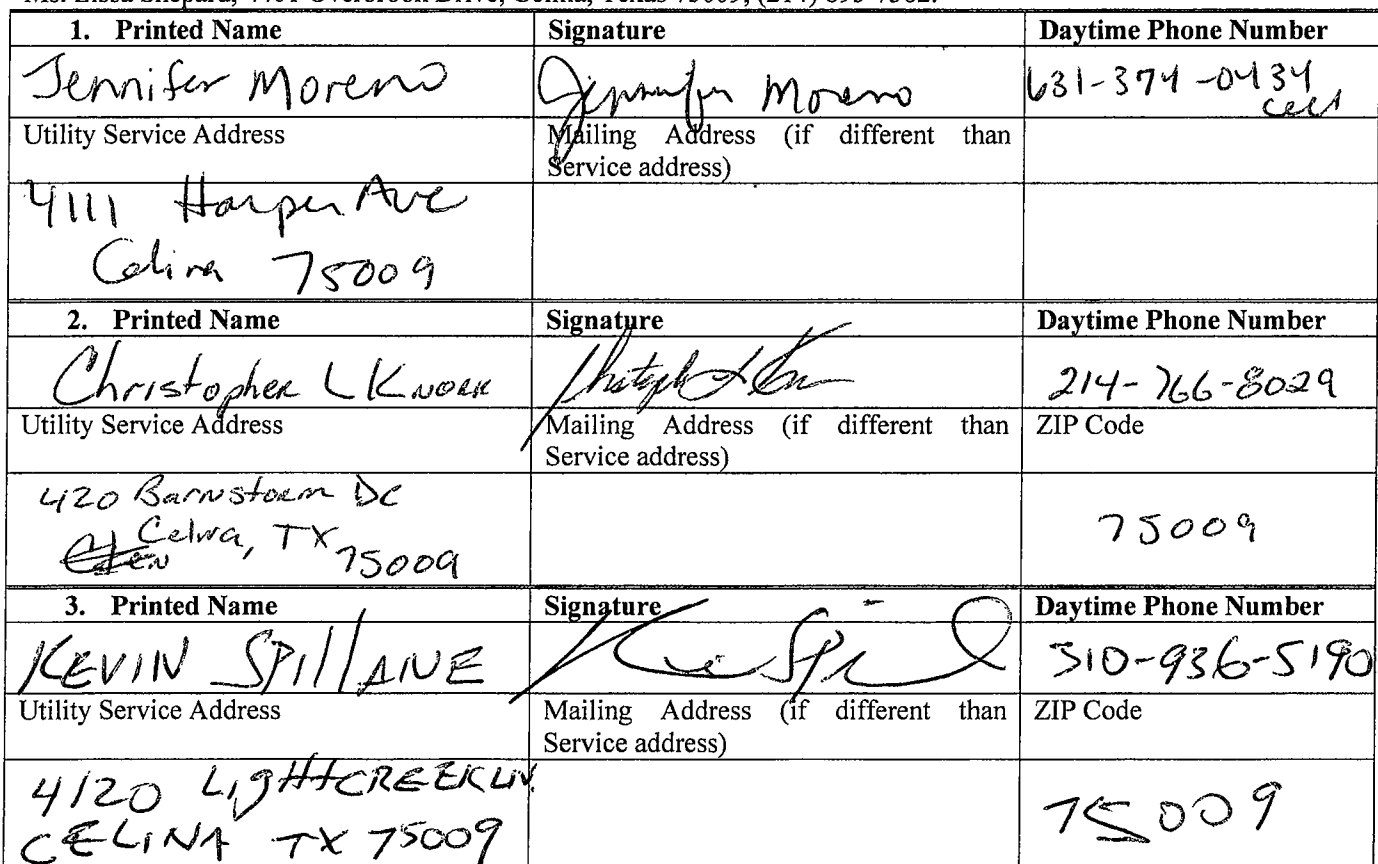 1. Printed Name Signature Daytime Phone Number
Jennifer Moreno Jennifer Moreno 631-374-0434
cell
Utility Service Address Mailing Address (if different than
Service address)
4111 Harper Ave
Celina 75009
2. Printed Name Signature Daytime Phone Number
Christopher L Knorr 214-766-8029
Utility Service Address Mailing Address (if different than ZIP Code
Service address)
420 Barnstorm Dr
Celina, TX 75009
75009
3. Printed Name Signature Daytime Phone Number
KEVIN SPILLANE 310-936-5190
Utility Service Address Mailing Address (if different than ZIP Code
Service address)
4120 LIGHTCREEK LN.
CELINA TX 75009
75009